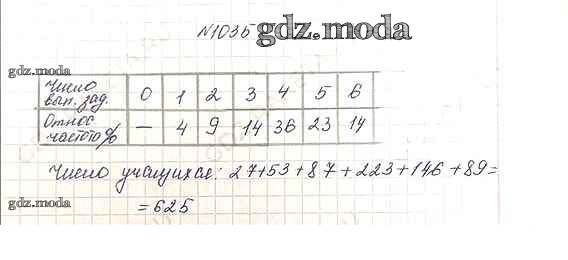 №1035 gdz.moda
gdz.moda
Число вып. зад. 0 1 2 3 4 5 6
Относ частота % — 4 9 14 36 23 14
Число учащихся: 27+53+87+223+146+89=
gdz.moda
=625